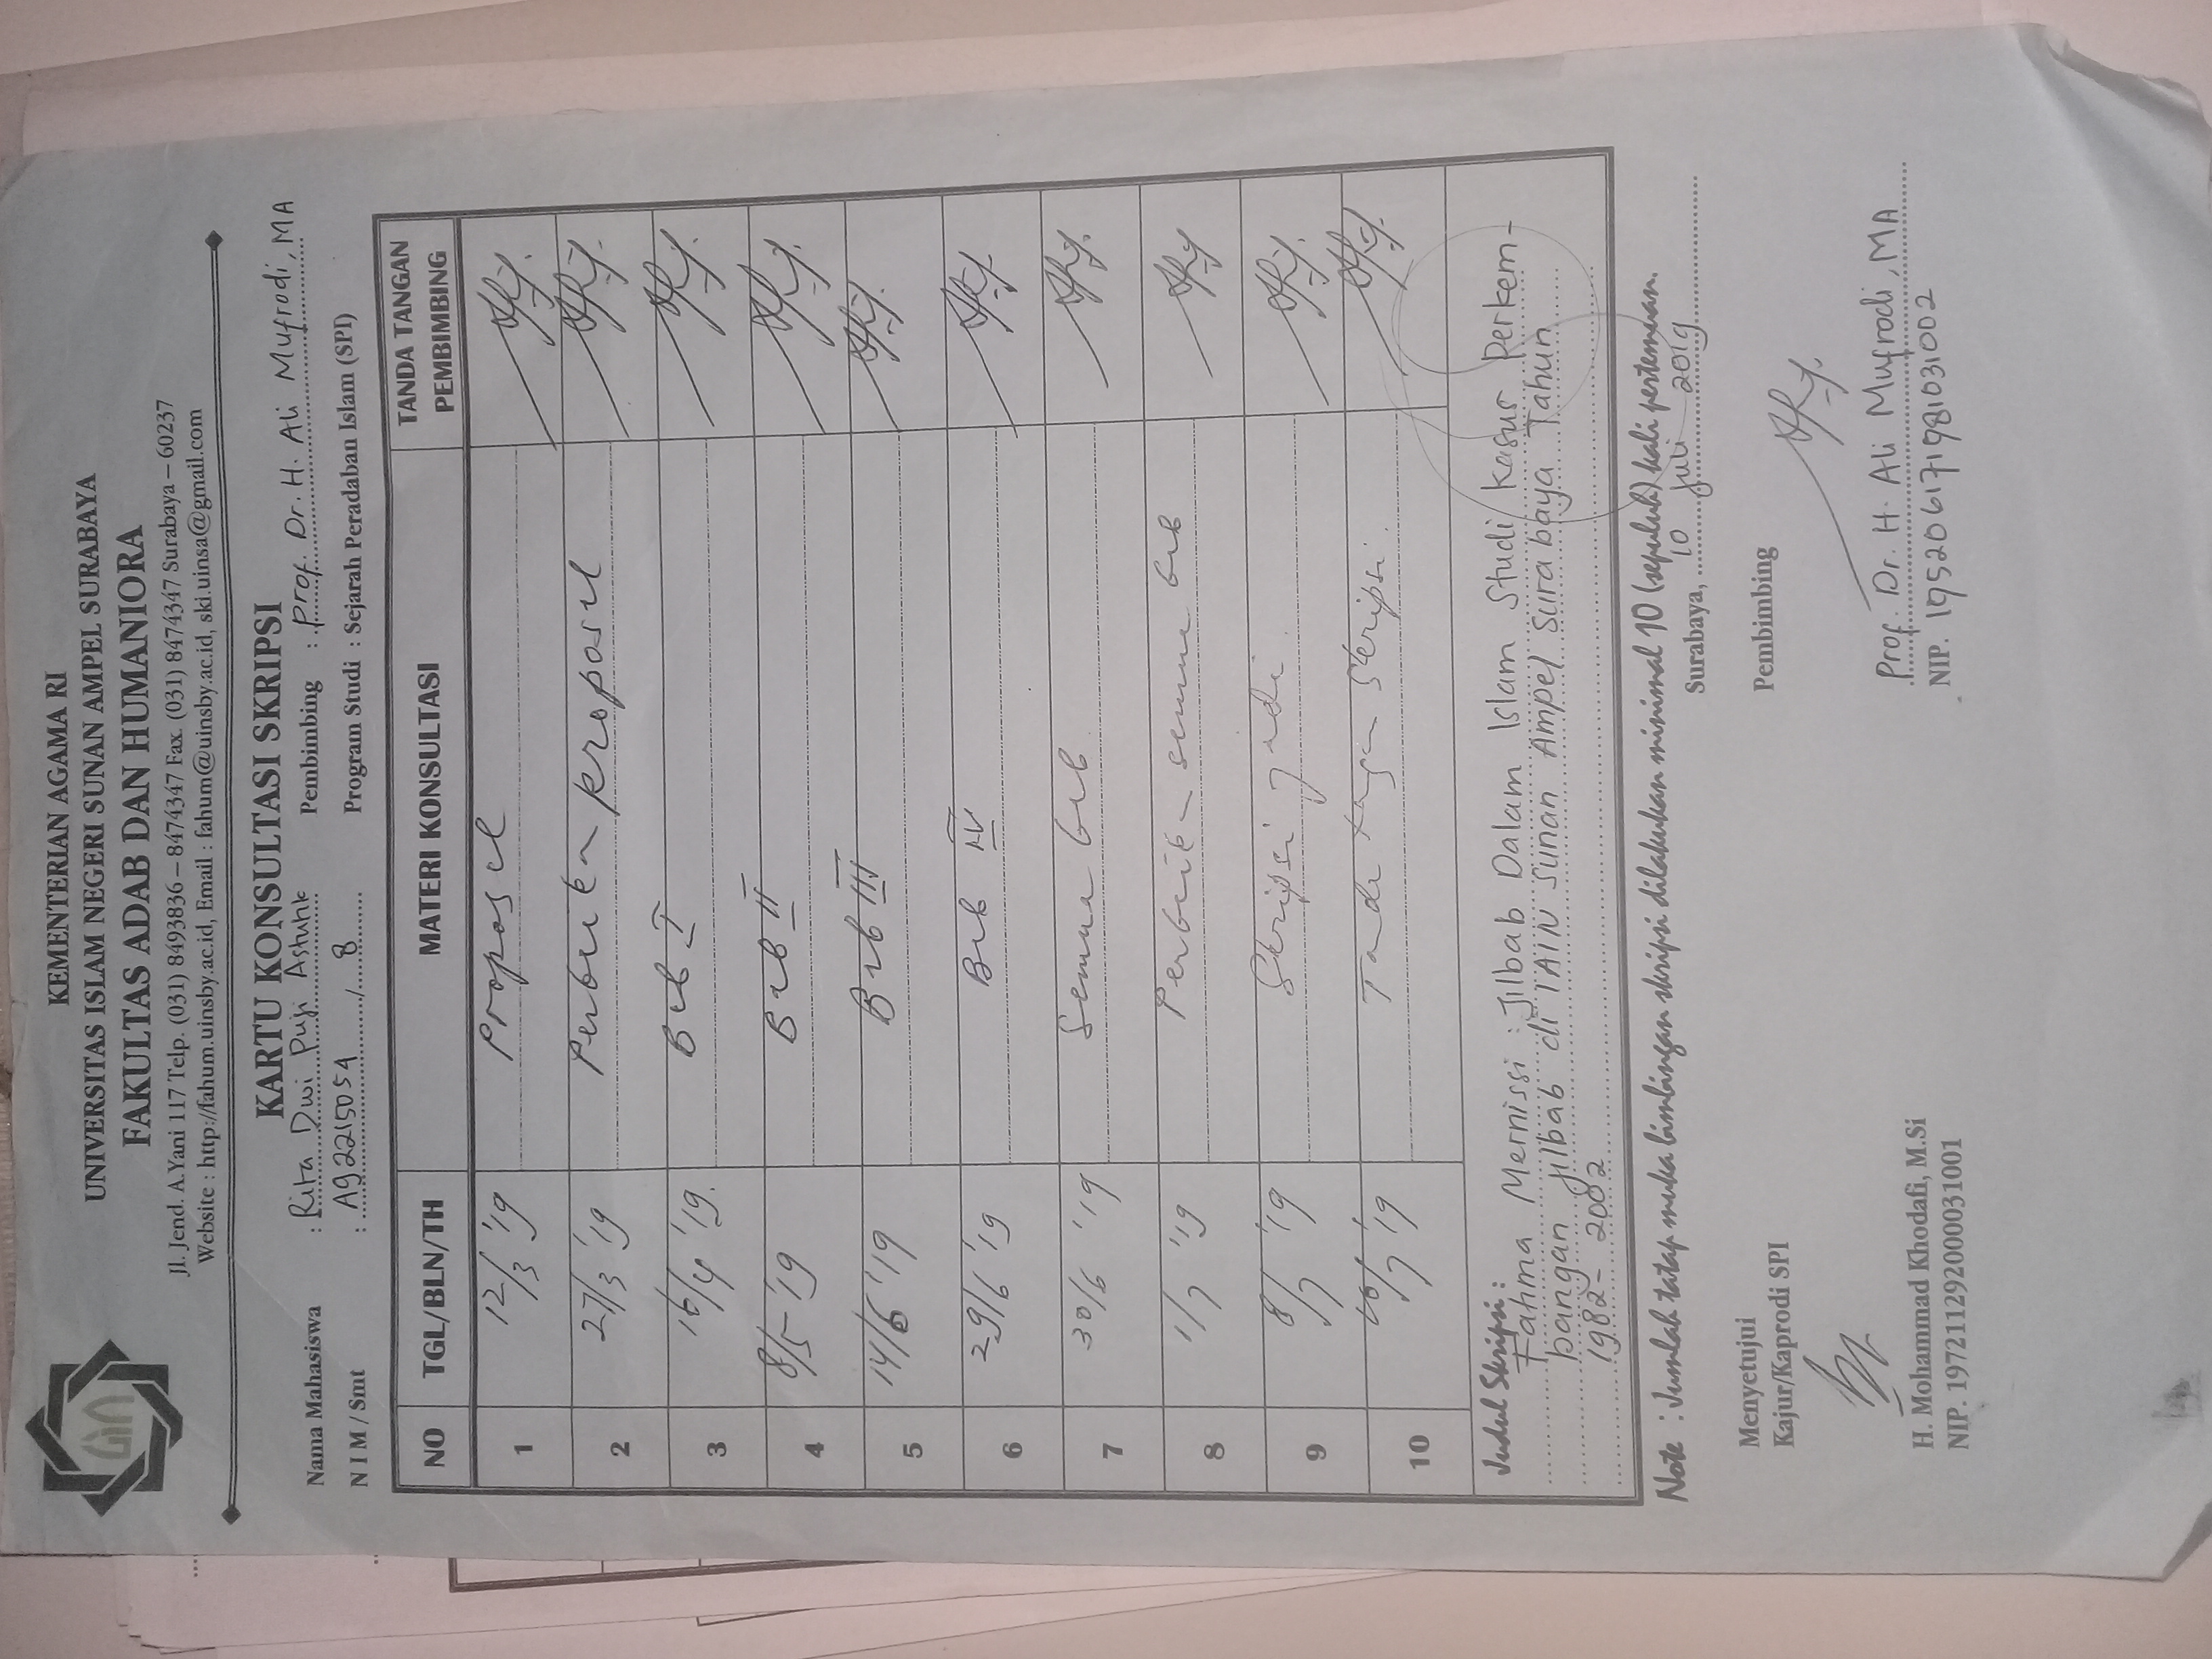 KEMENTERIAN AGAMA RI
UNIVERSITAS ISLAM NEGERI SUNAN AMPEL SURABAYA
FAKULTAS ADAB DAN HUMANIORA
Jl. Jend. A.Yani 117 Telp. (031) 8493836 – 8474347 Fax. (031) 8474347 Surabaya – 60237
Website : http://fahum.uinsby.ac.id, Email : fahum@uinsby.ac.id, ski.uinsa@gmail.com
KARTU KONSULTASI SKRIPSI
Nama Mahasiswa : Rita Dwi Puji Astutik Pembimbing : Prof. Dr. H. Ali Mufrodi, MA
N I M / Smt : A92215054 / 8 Program Studi : Sejarah Peradaban Islam (SPI)
NO TGL/BLN/TH MATERI KONSULTASI TANDA TANGAN PEMBIMBING
1 12/3 '19 Proposal
2 27/3 '19 Perbaikan proposal
3 16/4 '19. Bab I
4 8/5 '19 Bab II
5 14/6 '19 Bab III
6 29/6 '19 Bab IV
7 30/6 '19 Semua bab
8 1/7 '19 Perbaikan semua bab
9 8/7 '19 Skripsi jadi.
10 10/7 '19 Tanda tangan Skripsi.
Judul Skripsi :
Fatima Mernissi : Jilbab Dalam Islam Studi Kasus Perkem-
bangan jilbab di IAIN Sunan Ampel Surabaya Tahun
1982 - 2002
Note : Jumlah tatap muka bimbingan skripsi dilakukan minimal 10 (sepuluh) kali pertemuan.
Surabaya, 10 Juli 2019
Menyetujui
Kajur/Kaprodi SPI
Pembimbing
H. Mohammad Khodafi, M.Si
NIP. 197211292000031001
Prof. Dr. H. Ali Mufrodi, MA
NIP. 195206171981031002